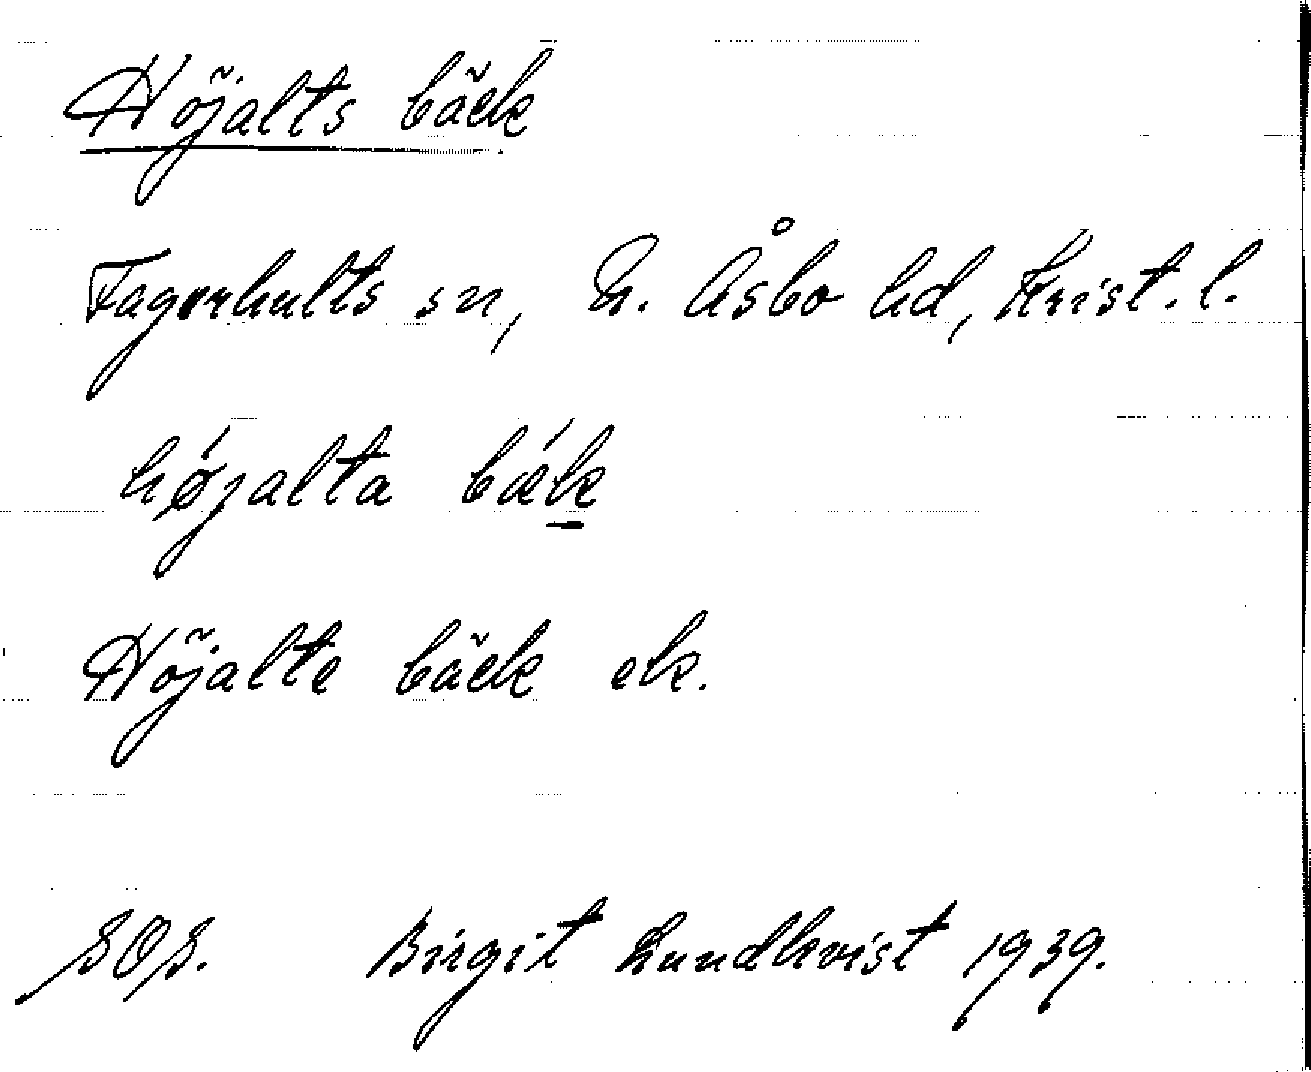 Höjalts bäck
Fagerhults sn, N. Åsbo hd, Krist. l.
hǿjalta bǽk
Höjalte bäck ek.
SOS. Birgit Lundkvist 1939.